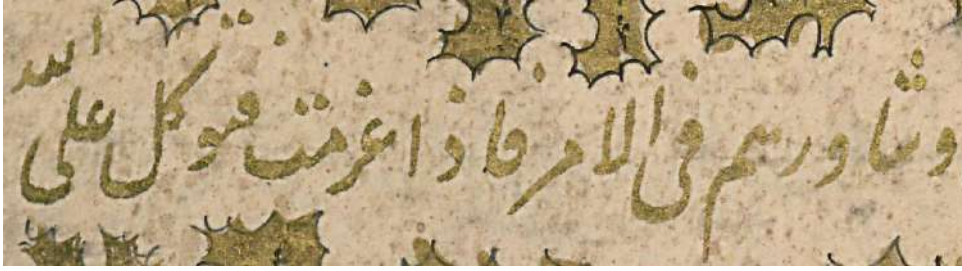 وشاورهم فی الامر فاذا عزمت فتوکل علی الله